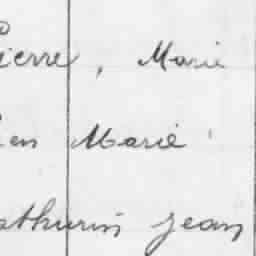 ierre, Marie
en Marie
athurin jean